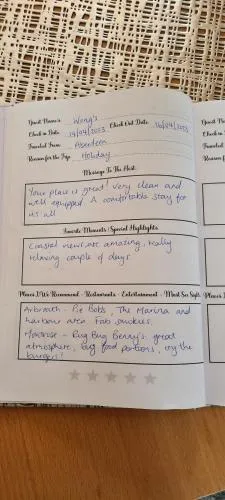 Guest Name/s Wong's
Check in Date 14/04/2023 Check Out Date 16/04/2023
Traveled From Aberdeen
Reason for the Trip Holiday
Message To The Host
Your place is great! Very clean and
well equipped. A comfortable stay for
us all
Favorite Moments / Special Highlights
Coastal views are amazing, really
relaxing couple of days
Places I/We Recommend - Restaurants - Entertainment - Must See Sights
Arbroath - Pie Bobs, The Marina and
harbour area. Fab smokies.
Montrose - Bug Benny's. great
atmosphere, big food portions, try the
burgers!
Guest Na
Check in D
Traveled
Reason fo
Places I